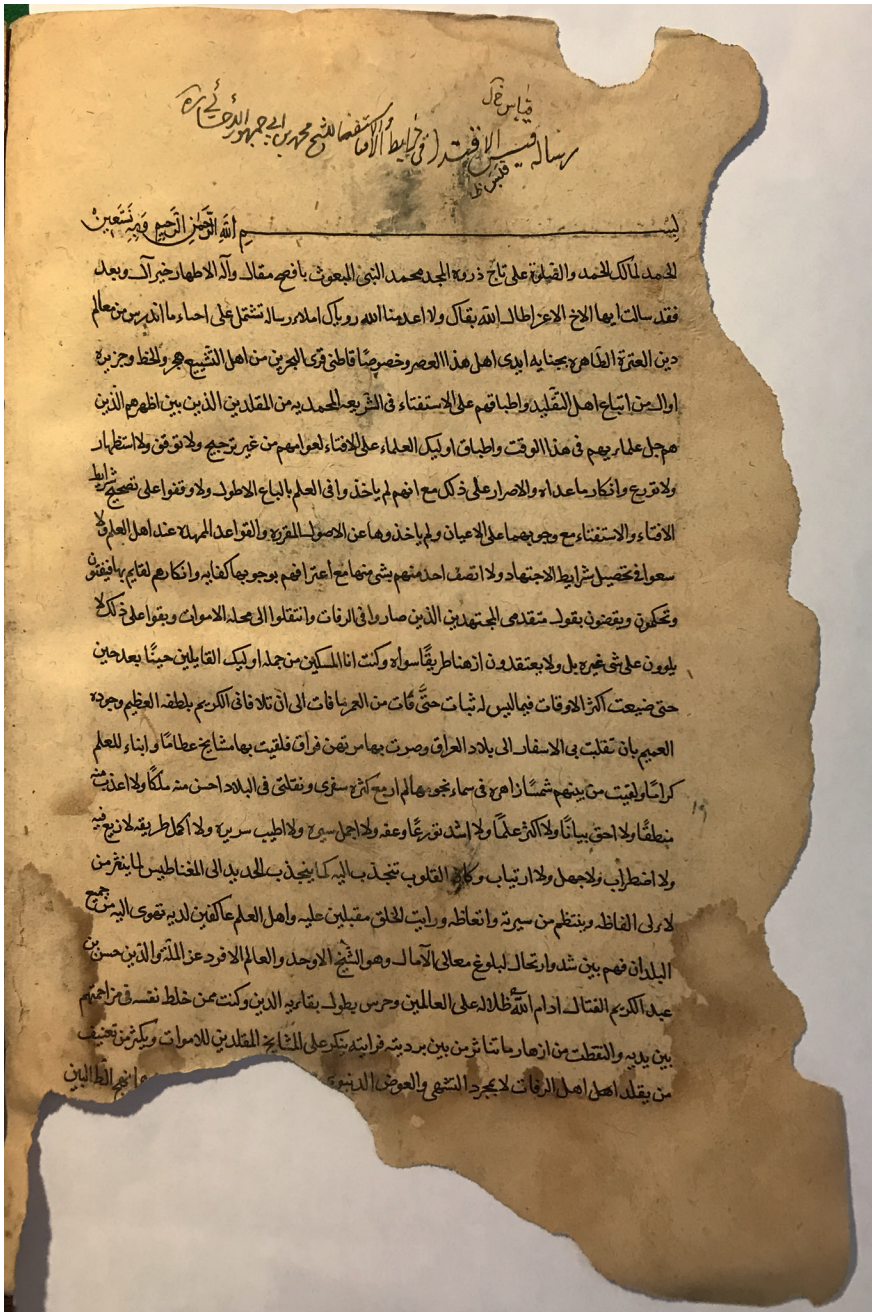 قباس خ ل
رسالة قبس الاقتدا في شرايط الافتا للشيخ محمد بن ابي جمهور الأحسائي ره
قبس ظ
بسم الله الرحمن الرحيم وبه نستعين
الحمد لمالك الحمد والصلوة على تاج ذروة المجد محمد النبي المبعوث بافصح مقال وآله الاطهار خير آل وبعد
فقد سالت ايها الاخ الاعز اطال الله بقاك ولا اعدمنا الله روياك املاء رسالة تشتمل على احياء ما اندرس من معالم
دين العترة الطاهره بجنايه ايدى اهل هذا العصر وخصوصًا قاطني قرى البحرين من اهل التشييع هجر والخط وجزيره
اوال من اتباع اهل التقليد واطباقهم على الاستفتاء في الشريعه المحمديه من المقلدين الذين بين اظهرهم الذين
هم جل علمايهم في هذا الوقت واطباق اوليك العلماء على الافتاء لعوامهم من غير ترجيح ولا توقف ولا استظهار
ولا تورع وانكار ما عداه والاصرار على ذلك مع انهم لم ياخذوا في العلم بالباع الاطول ولا وقفوا على تصحيح شرايط
الافتاء والاستفتاء مع وجوبهما على الاعيان ولم ياخذوها عن الاصول المقرره والقواعد الممهدة عند اهل العلم ولا
سعوا في تحصيل شرايط الاجتهاد ولا اتصف احد منهم بشي منها مع اعترافهم بوجوبها كفايه وانكارهم لقايم بها فيفتون
وتحكمون ويقضون بقول متقدمى المجتهدين الذين صاروا في الرفات وانتقلوا الى محلة الاموات وبقوا على ذلك لا
يلوون على شى غيره بل ولا يعتقدون ازهنا طريقًا سواه وكنت انا المسكين من جمله اوليك القايلين حينًا بعد حين
حتى ضيعت اكثر الاوقات فيما ليس له ثبات حتَّى فات من العمر ما فات الى ان تلافانى الكريم بلطفه العظيم وجوده
العميم بان تقلبت بى الاسفار الى بلاد العراق وصرت بها مرتهن فراق فلقيت بها مشايخ عظامًا وابناء للعلم
كرامًا ولقيت من بينهم شمسًا زاهرة في سماء نجومها لم ار مع كثرة سفرى ونقلتى في البلاد احسن منه ملكًا ولا اعذب منه
منطقًا ولا احق بيانًا ولا اكثر علمًا ولا اشد تورعًا وعفه ولا اجمل سيرة ولا اطيب سريره ولا اكمل طريقه لا زيغ فيه
ولا اضطراب ولا جهل ولا ارتياب وكانت القلوب تنجذب اليه كما ينجذب الحديد الى المغناطيس لما ينثر من
لالى الفاظه وينتظم من سيرته واتعاظه ورايت الخلق مقبلين عليه واهل العلم عاكفين لديه تهوى اليه من جميع
البلدان فهم بين شد وارتحال لبلوغ معالى الآمال وهو الشيخ الاوحد والعالم الافرد عز الملة والدين حسن بن
عبد الكريم الفتال ادام الله ظلاله على العالمين وحرس بطول بقايه الدين وكنت ممن خلط نفسه في مزاحمتهم
بين يديه والتقطت من ازهار ما تناثر من بين برديته فرايته ينكر على المشايخ المقلدين للاموات ويكثر من تعنيف
من يقلد اهل اهل الرفات لا بمجرد التشهى والعوض الدنيوى